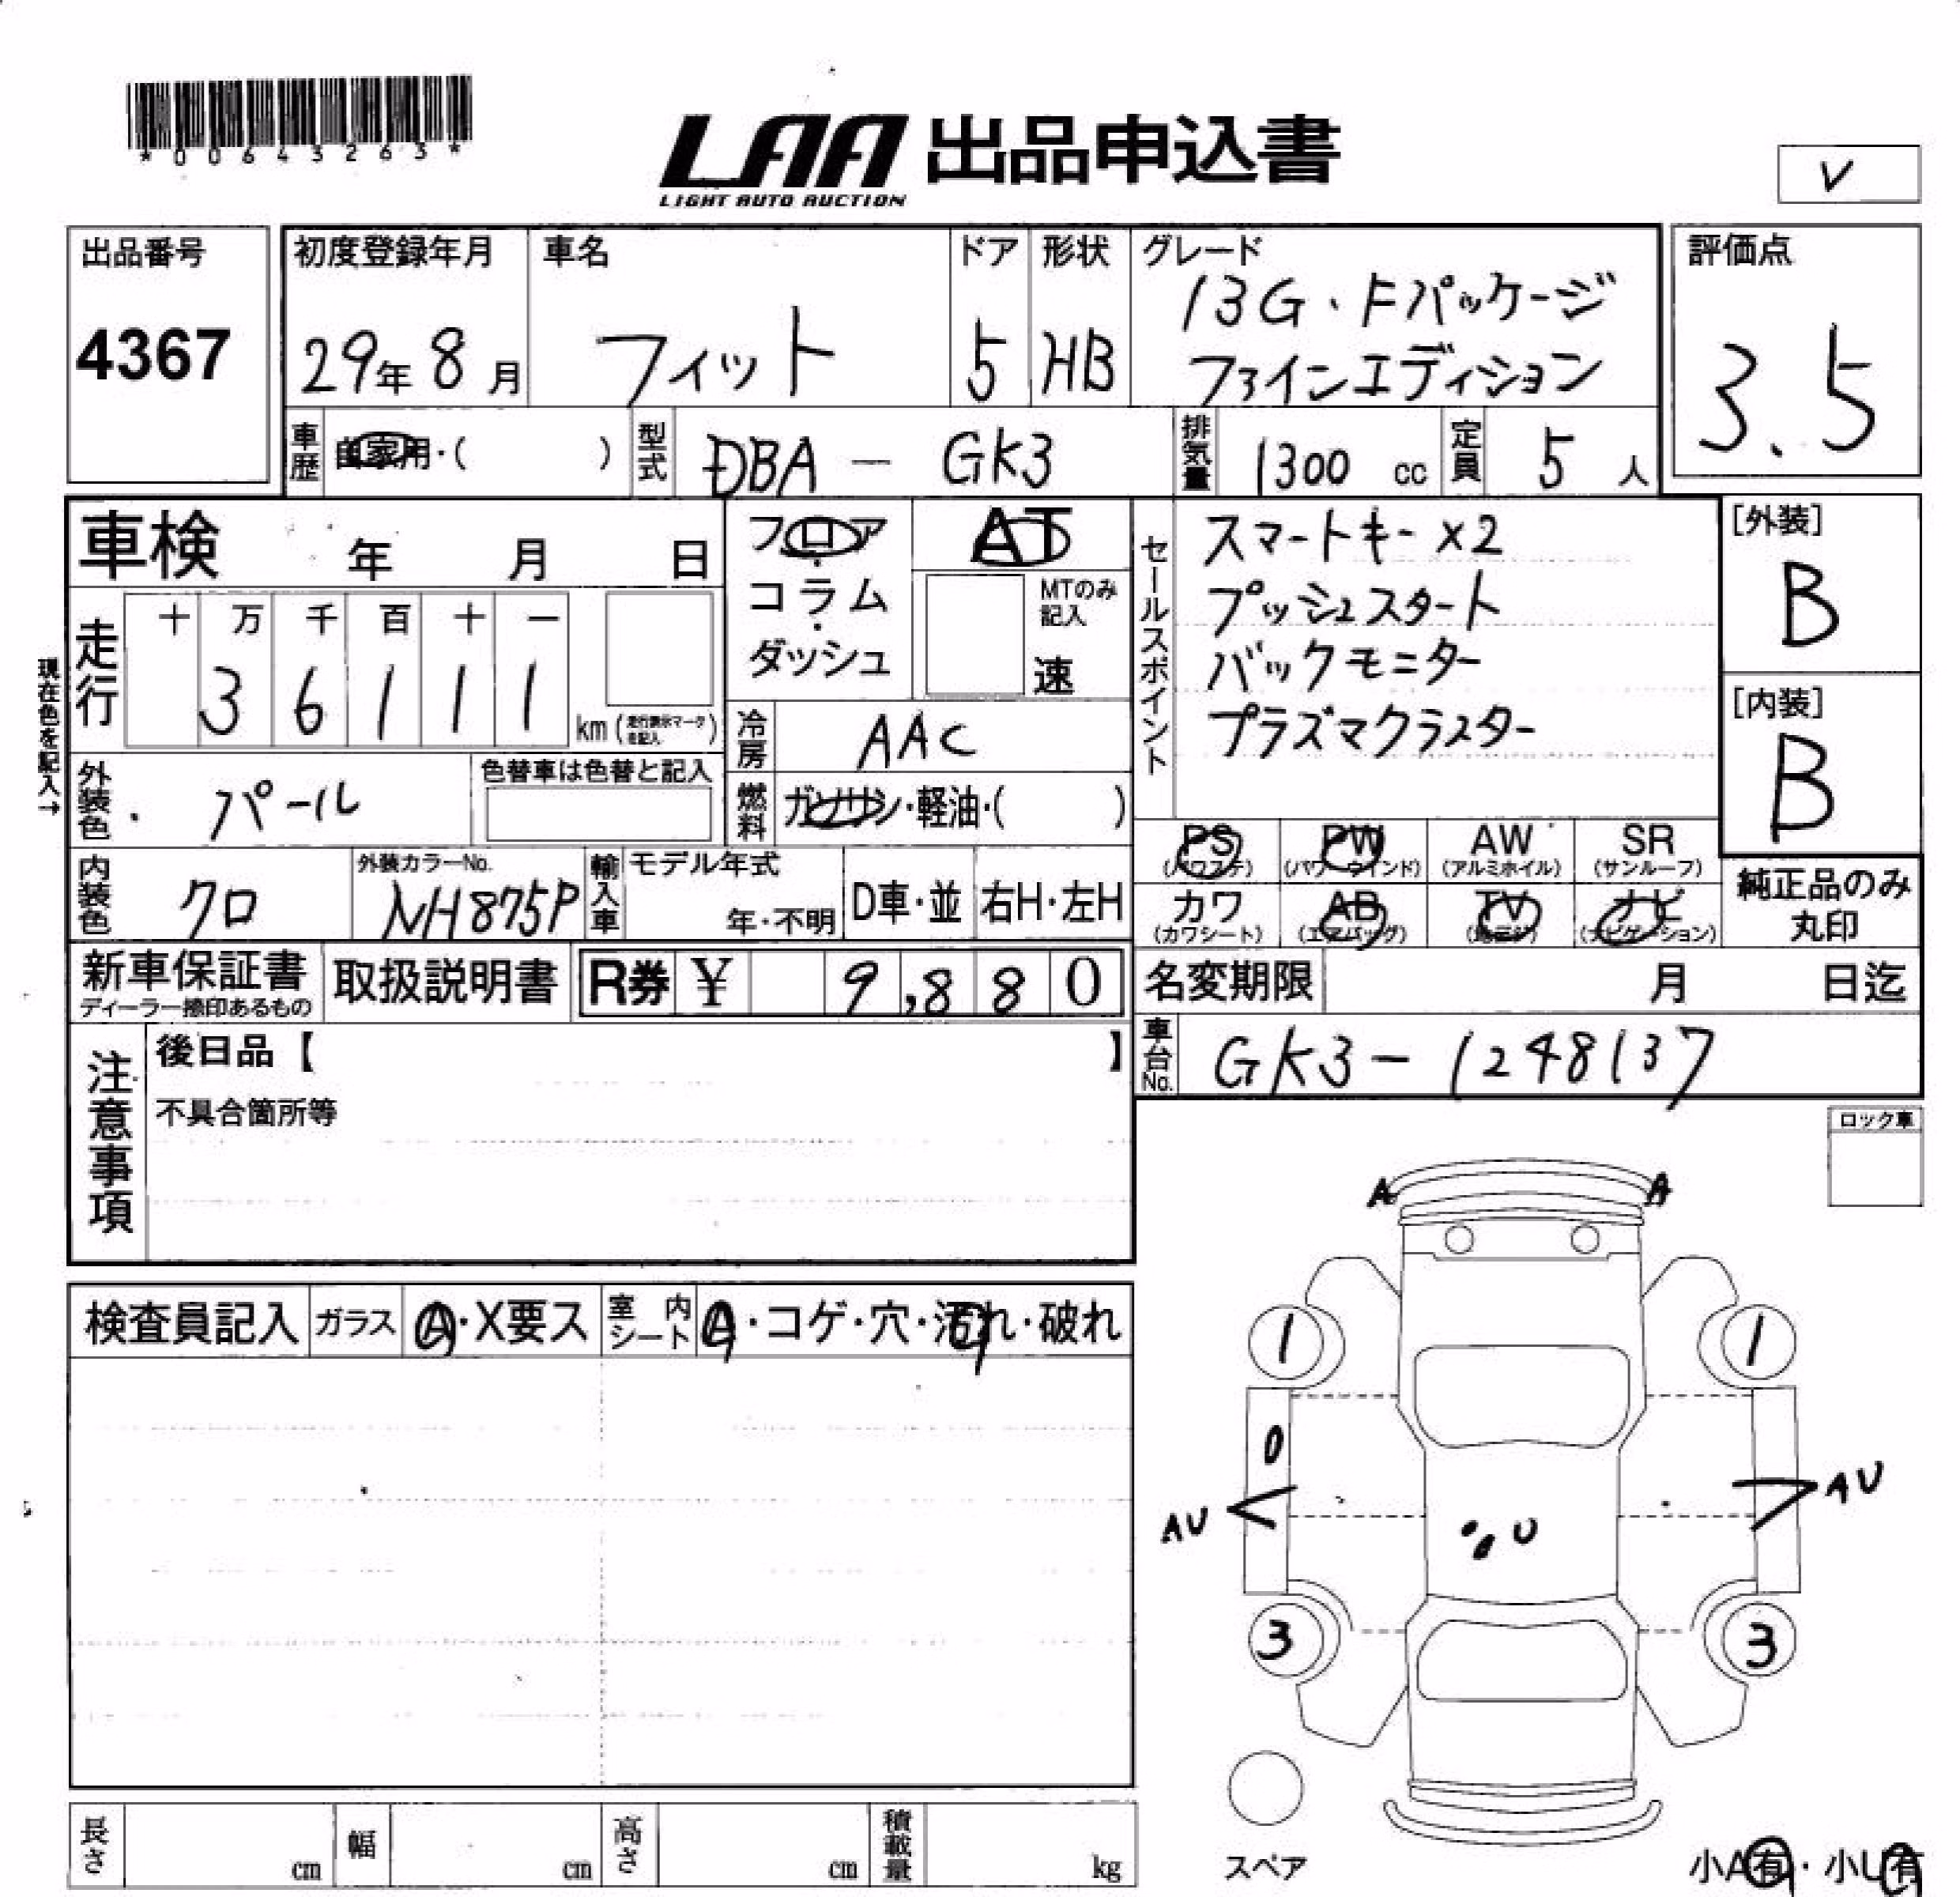 *00643263*
LAA 出品申込書
LIGHT AUTO AUCTION
V
出品番号
4367
初度登録年月
29年 8月
車名
フィット
ドア
5
形状
HB
グレード
13G・Fパッケージ
ファインエディション
評価点
3.5
車歴
自家用・( )
型式
DBA - GK3
排気量
1300 cc
定員
5 人
車検 年 月 日
フロア・
コラム・
ダッシュ
AT
MTのみ
記入
速
セールスポイント
スマートキー x2
プッシュスタート
バックモニター
プラズマクラスター
[外装]
B
[内装]
B
現在色を記入→
走行
十 万 千 百 十 一
3 6 1 1 1
km (走行表示マークを記入)
冷房
AAC
外装色
パール
色替車は色替と記入
燃料
ガソリン・軽油・( )
PS
(パワステ)
PW
(パワーウインド)
AW
(アルミホイル)
SR
(サンルーフ)
カワ
(カワシート)
AB
(エアバッグ)
TV
(地デジ)
ナビ
(ナビゲーション)
純正品のみ
丸印
内装色
クロ
外装カラーNo.
NH875P
輸入車
モデル年式
年・不明
D車・並
右H・左H
新車保証書
ディーラー捺印あるもの
取扱説明書
R券 ¥ 9,880
名変期限 月 日迄
注意事項
後日品【 】
不具合箇所等
車台No.
GK3-1248137
ロック車
検査員記入
ガラス
A・X要ス
室内シート
A・コゲ・穴・汚れ・破れ
A A
1 1
AU AU
U
3 3
スペア
長さ cm
幅 cm
高さ cm
積載量 kg
小A有・小U有